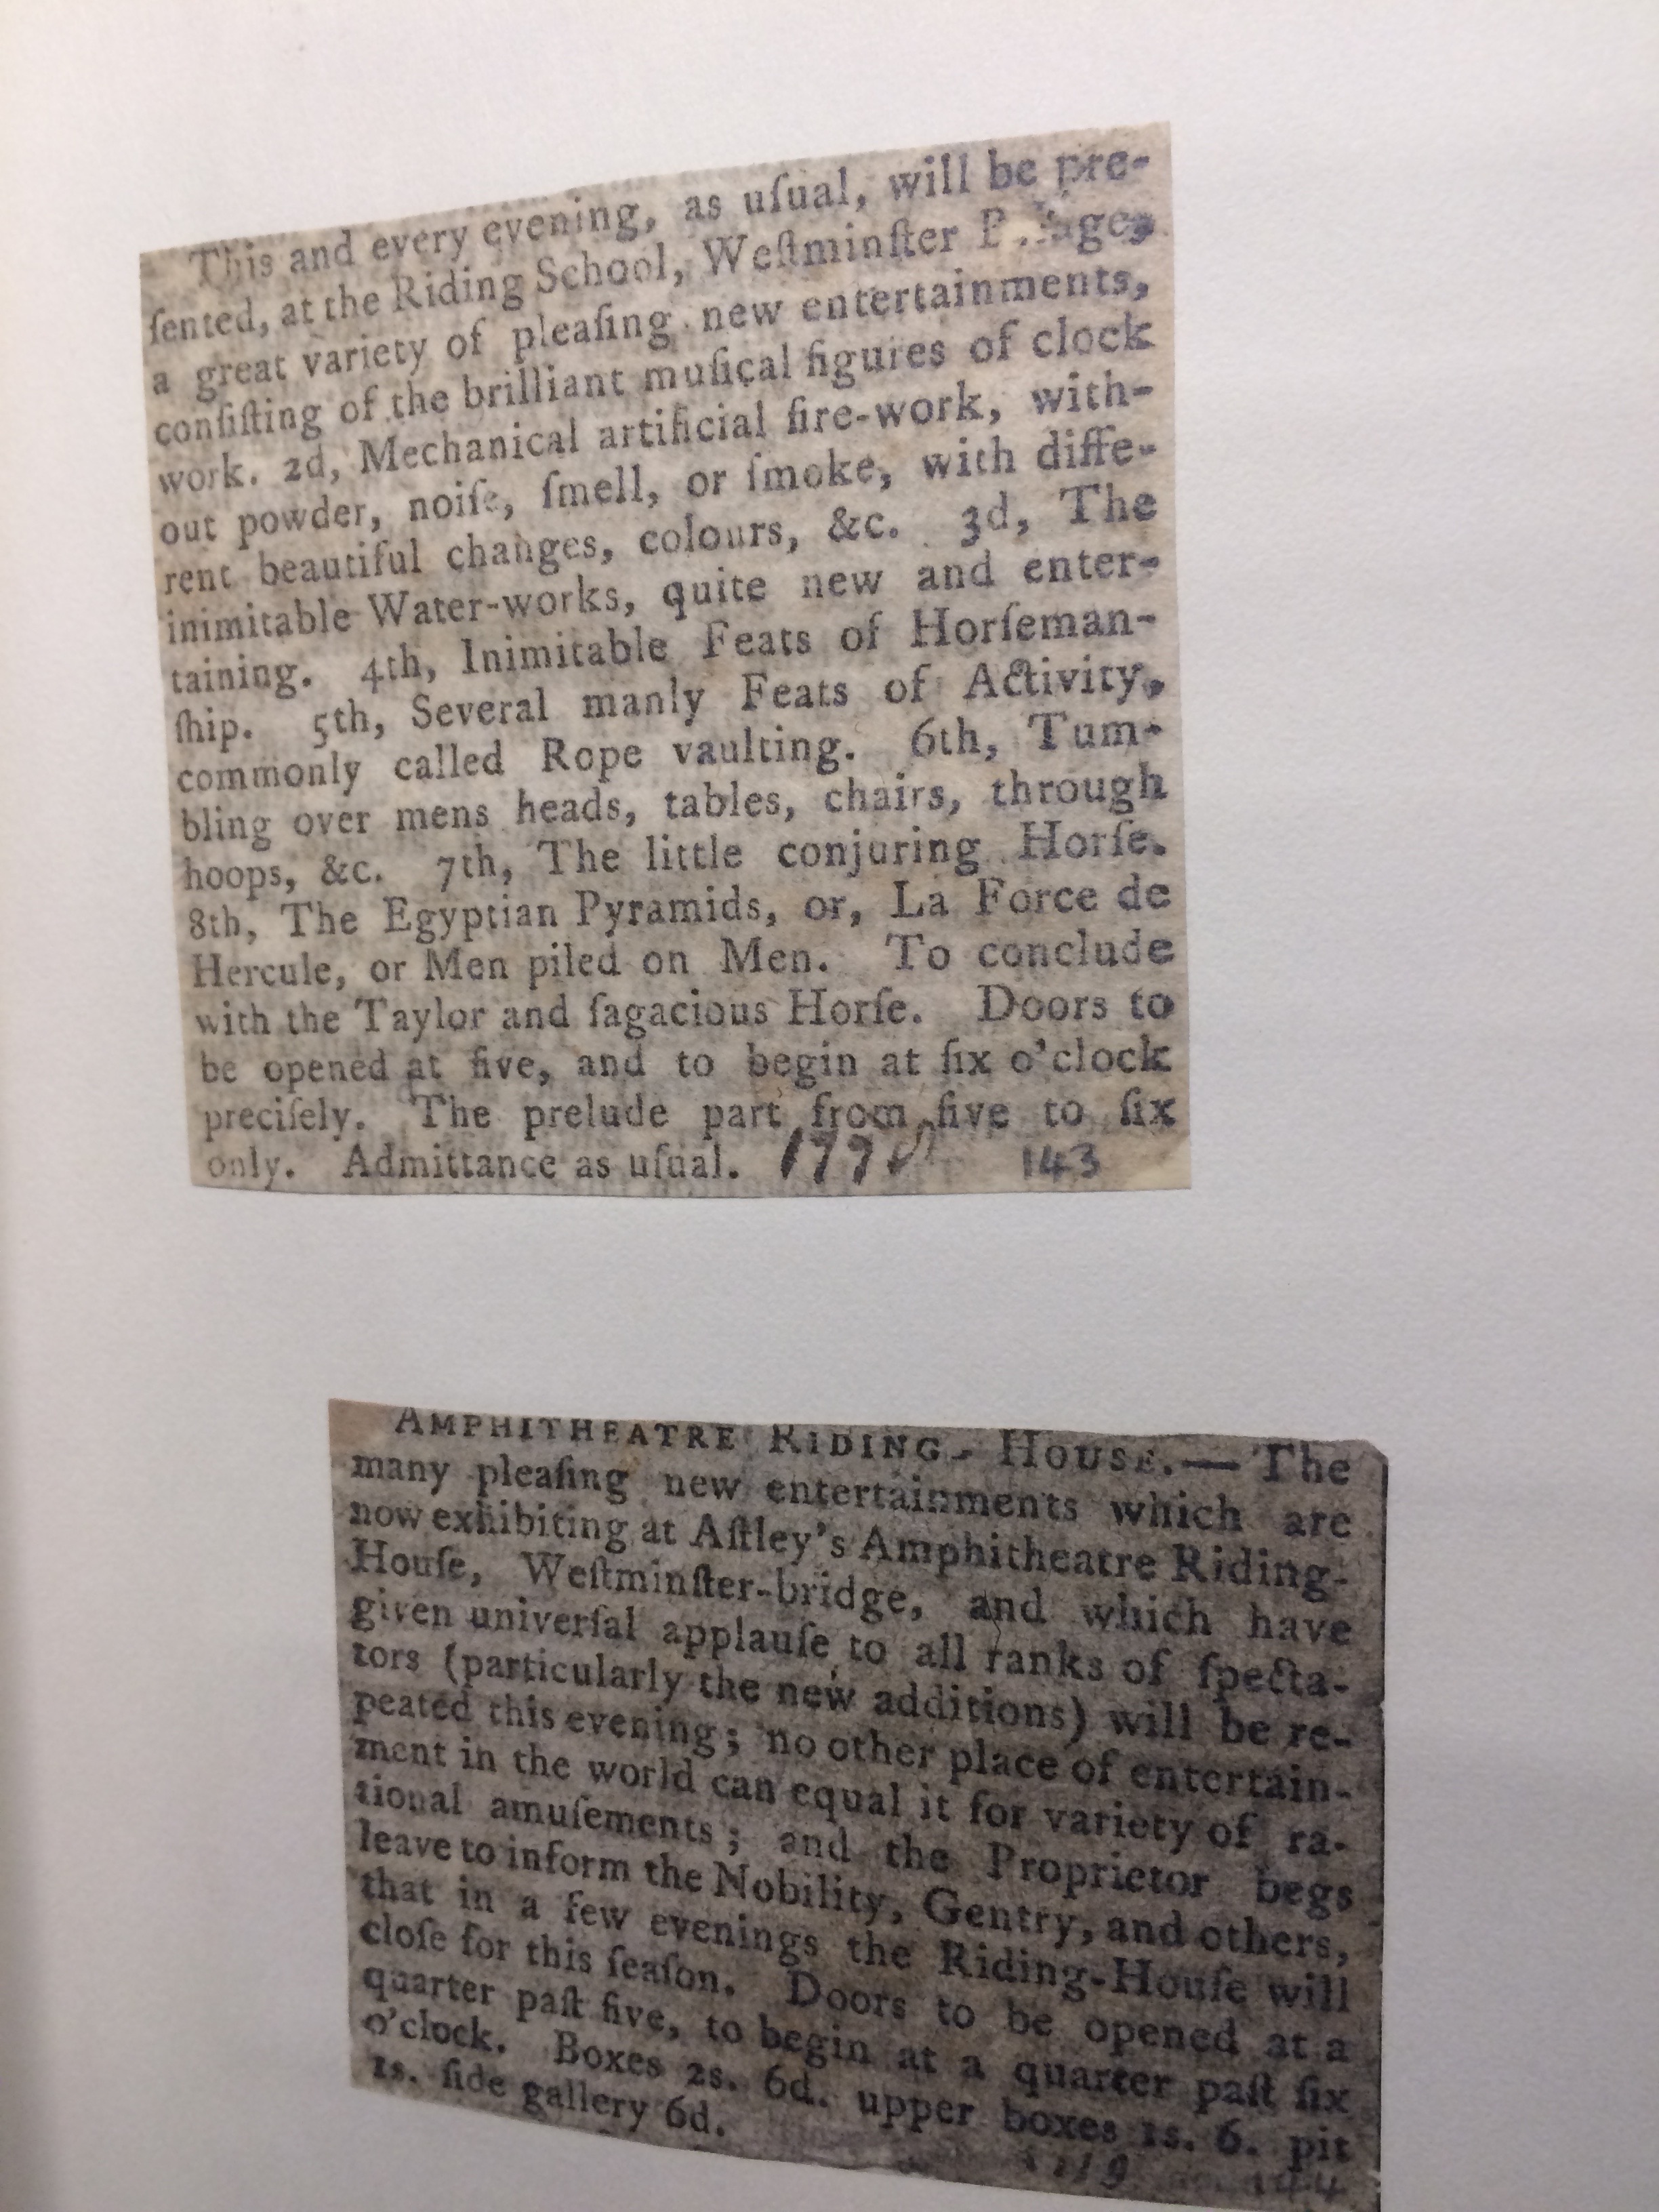 This and every evening, as uſual, will be pre-
ſented, at the Riding School, Weſtminſter
a great variety of pleaſing new entertainments,
conſiſting of the brilliant muſical figures of clock
work. 2d, Mechanical artificial fire-work, with-
out powder, noiſe, ſmell, or ſmoke, with diffe-
rent beautiful changes, colours, &c. 3d, The
inimitable Water-works, quite new and enter-
taining. 4th, Inimitable Feats of Horſeman-
ſhip. 5th, Several manly Feats of Activity,
commonly called Rope vaulting. 6th, Tum-
bling over mens heads, tables, chairs, through
hoops, &c. 7th, The little conjuring Horſe.
8th, The Egyptian Pyramids, or, La Force de
Hercule, or Men piled on Men. To conclude
with the Taylor and ſagacious Horſe. Doors to
be opened at five, and to begin at ſix o'clock
preciſely. The prelude part from five to ſix
only. Admittance as uſual. 143
AMPHITHEATRE RIDING-HOUSE.— The
many pleaſing new entertainments which are
now exhibiting at Aſtley's Amphitheatre Riding-
Houſe, Weſtminſter-bridge, and which have
given univerſal applauſe to all ranks of ſpecta-
tors (particularly the new additions) will be re-
peated this evening; no other place of entertain-
ment in the world can equal it for variety of ra-
tional amuſements; and the Proprietor begs
leave to inform the Nobility, Gentry, and others,
that in a few evenings the Riding-Houſe will
cloſe for this ſeaſon. Doors to be opened at a
quarter paſt five, to begin at a quarter paſt ſix
o'clock. Boxes 2s. 6d. upper boxes 1s. 6. pit
1s. ſide gallery 6d.
144